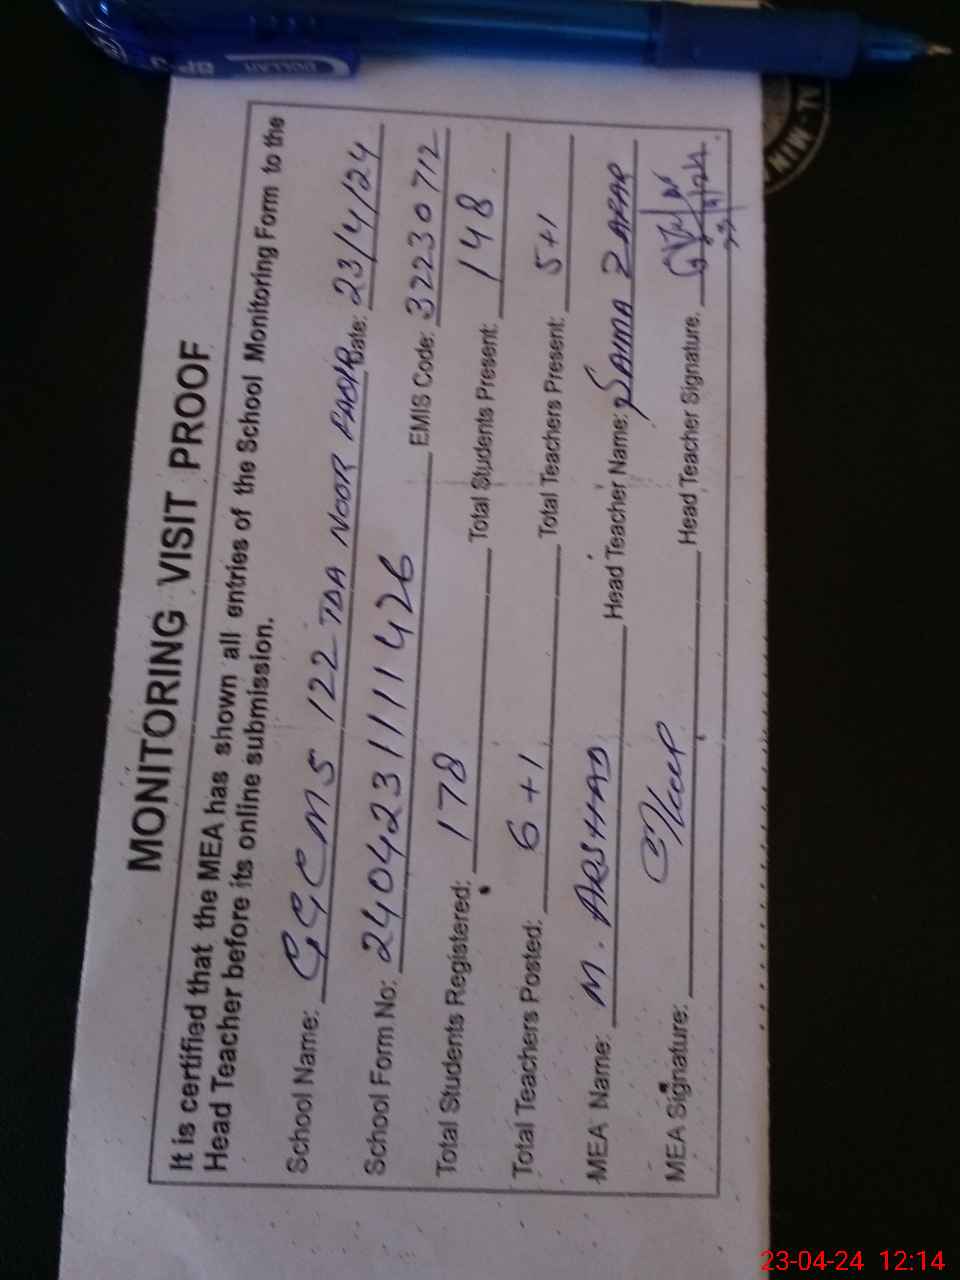 MONITORING VISIT PROOF
It is certified that the MEA has shown all entries of the School Monitoring Form to the
Head Teacher before its online submission.
School Name: GGCMS 122 TDA NOOR Date: 23/4/24
School Form No: 240423111426 EMIS Code: 32230712
Total Students Registered: 178 Total Students Present: 148
Total Teachers Posted: 6+1 Total Teachers Present: 5+1
MEA Name: M. ARSHAD Head Teacher Name: SAIMA ZAFAR
MEA Signature: Head Teacher Signature.
DOLLAR
23-04-24 12:14